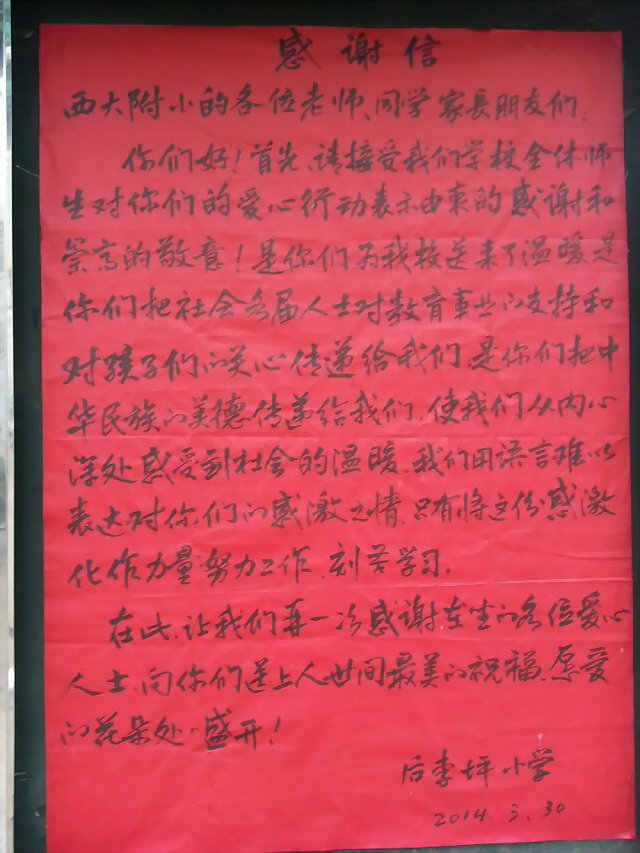 感谢信
西大附小的各位老师、同学家长朋友们:
你们好!首先,请接受我们学校全体师
生对你们的爱心行动表示由衷的感谢和
崇高的敬意!是你们为我校送来了温暖,是
你们把社会各届人士对教育事业的支持和
对孩子们的关心传递给我们,是你们把中
华民族的美德传递给我们,使我们从内心
深处感受到社会的温暖,我们用语言难以
表达对你们的感激之情,只有将这份感激
化作力量,努力工作,刻苦学习。
在此,让我们再一次感谢在坐的各位爱心
人士,向你们送上人世间最美的祝福,愿爱
的花朵处处盛开!
后李坪小学
2014.3.30